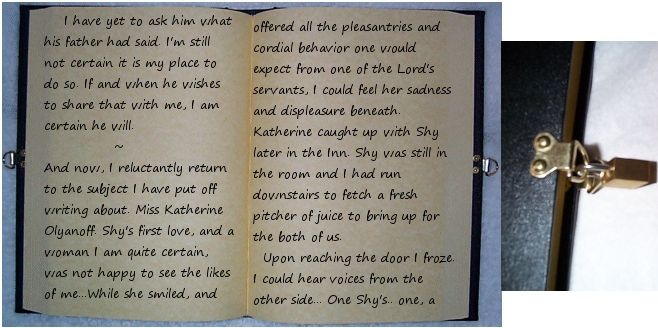 I have yet to ask him what
his father had said. I'm still
not certain it is my place to
do so. If and when he wishes
to share that with me, I am
certain he will.
~
And now, I reluctantly return
to the subject I have put off
writing about. Miss Katherine
Olyanoff. Shy's first love, and a
woman I am quite certain,
was not happy to see the likes
of me...While she smiled, and
offered all the pleasantries and
cordial behavior one would
expect from one of the Lord's
servants, I could feel her sadness
and displeasure beneath.
Katherine caught up with Shy
later in the Inn. Shy was still in
the room and I had run
downstairs to fetch a fresh
pitcher of juice to bring up for
the both of us.
Upon reaching the door I froze.
I could hear voices from the
other side... One Shy's.. one, a